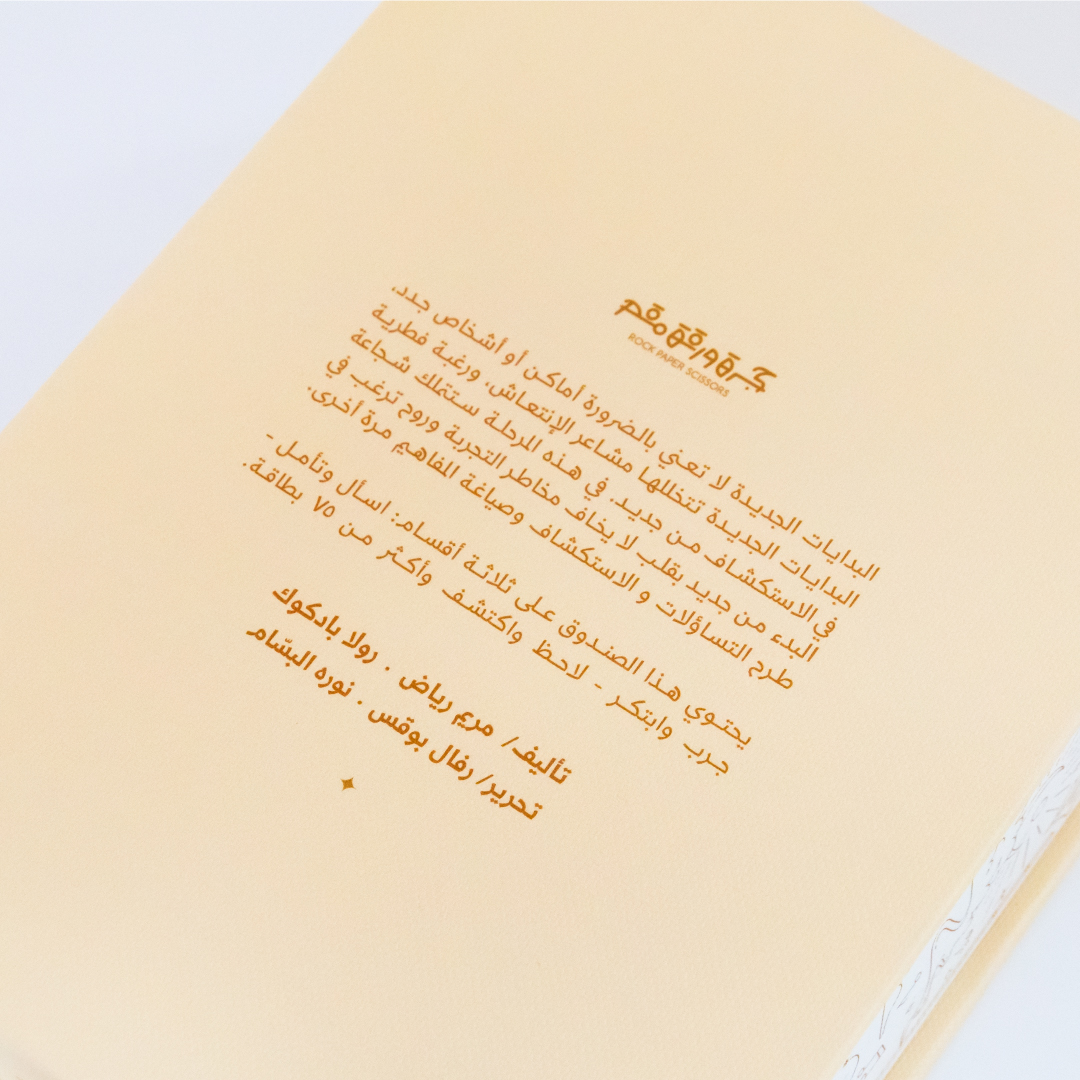 حجرة ورقة مقص
ROCK PAPER SCISSORS
البدايات الجديدة لا تعني بالضرورة أماكن أو أشخاص جدد،
البدايات الجديدة تتخللها مشاعر الإنتعاش، ورغبة فطرية
في الاستكشاف من جديد. في هذه المرحلة ستمتلك شجاعة
البدء من جديد بقلب لا يخاف مخاطر التجربة وروح ترغب في
طرح التساؤلات و الاستكشاف وصياغة المفاهيم مرة أخرى.
يحتوي هذا الصندوق على ثلاثة أقسام: اسأل وتأمل -
جرب وابتكر - لاحظ واكتشف وأكثر من ٧٥ بطاقة.
تأليف/ مريم رياض . رولا بادكوك
تحرير/ رفال بوقس . نوره البسّام